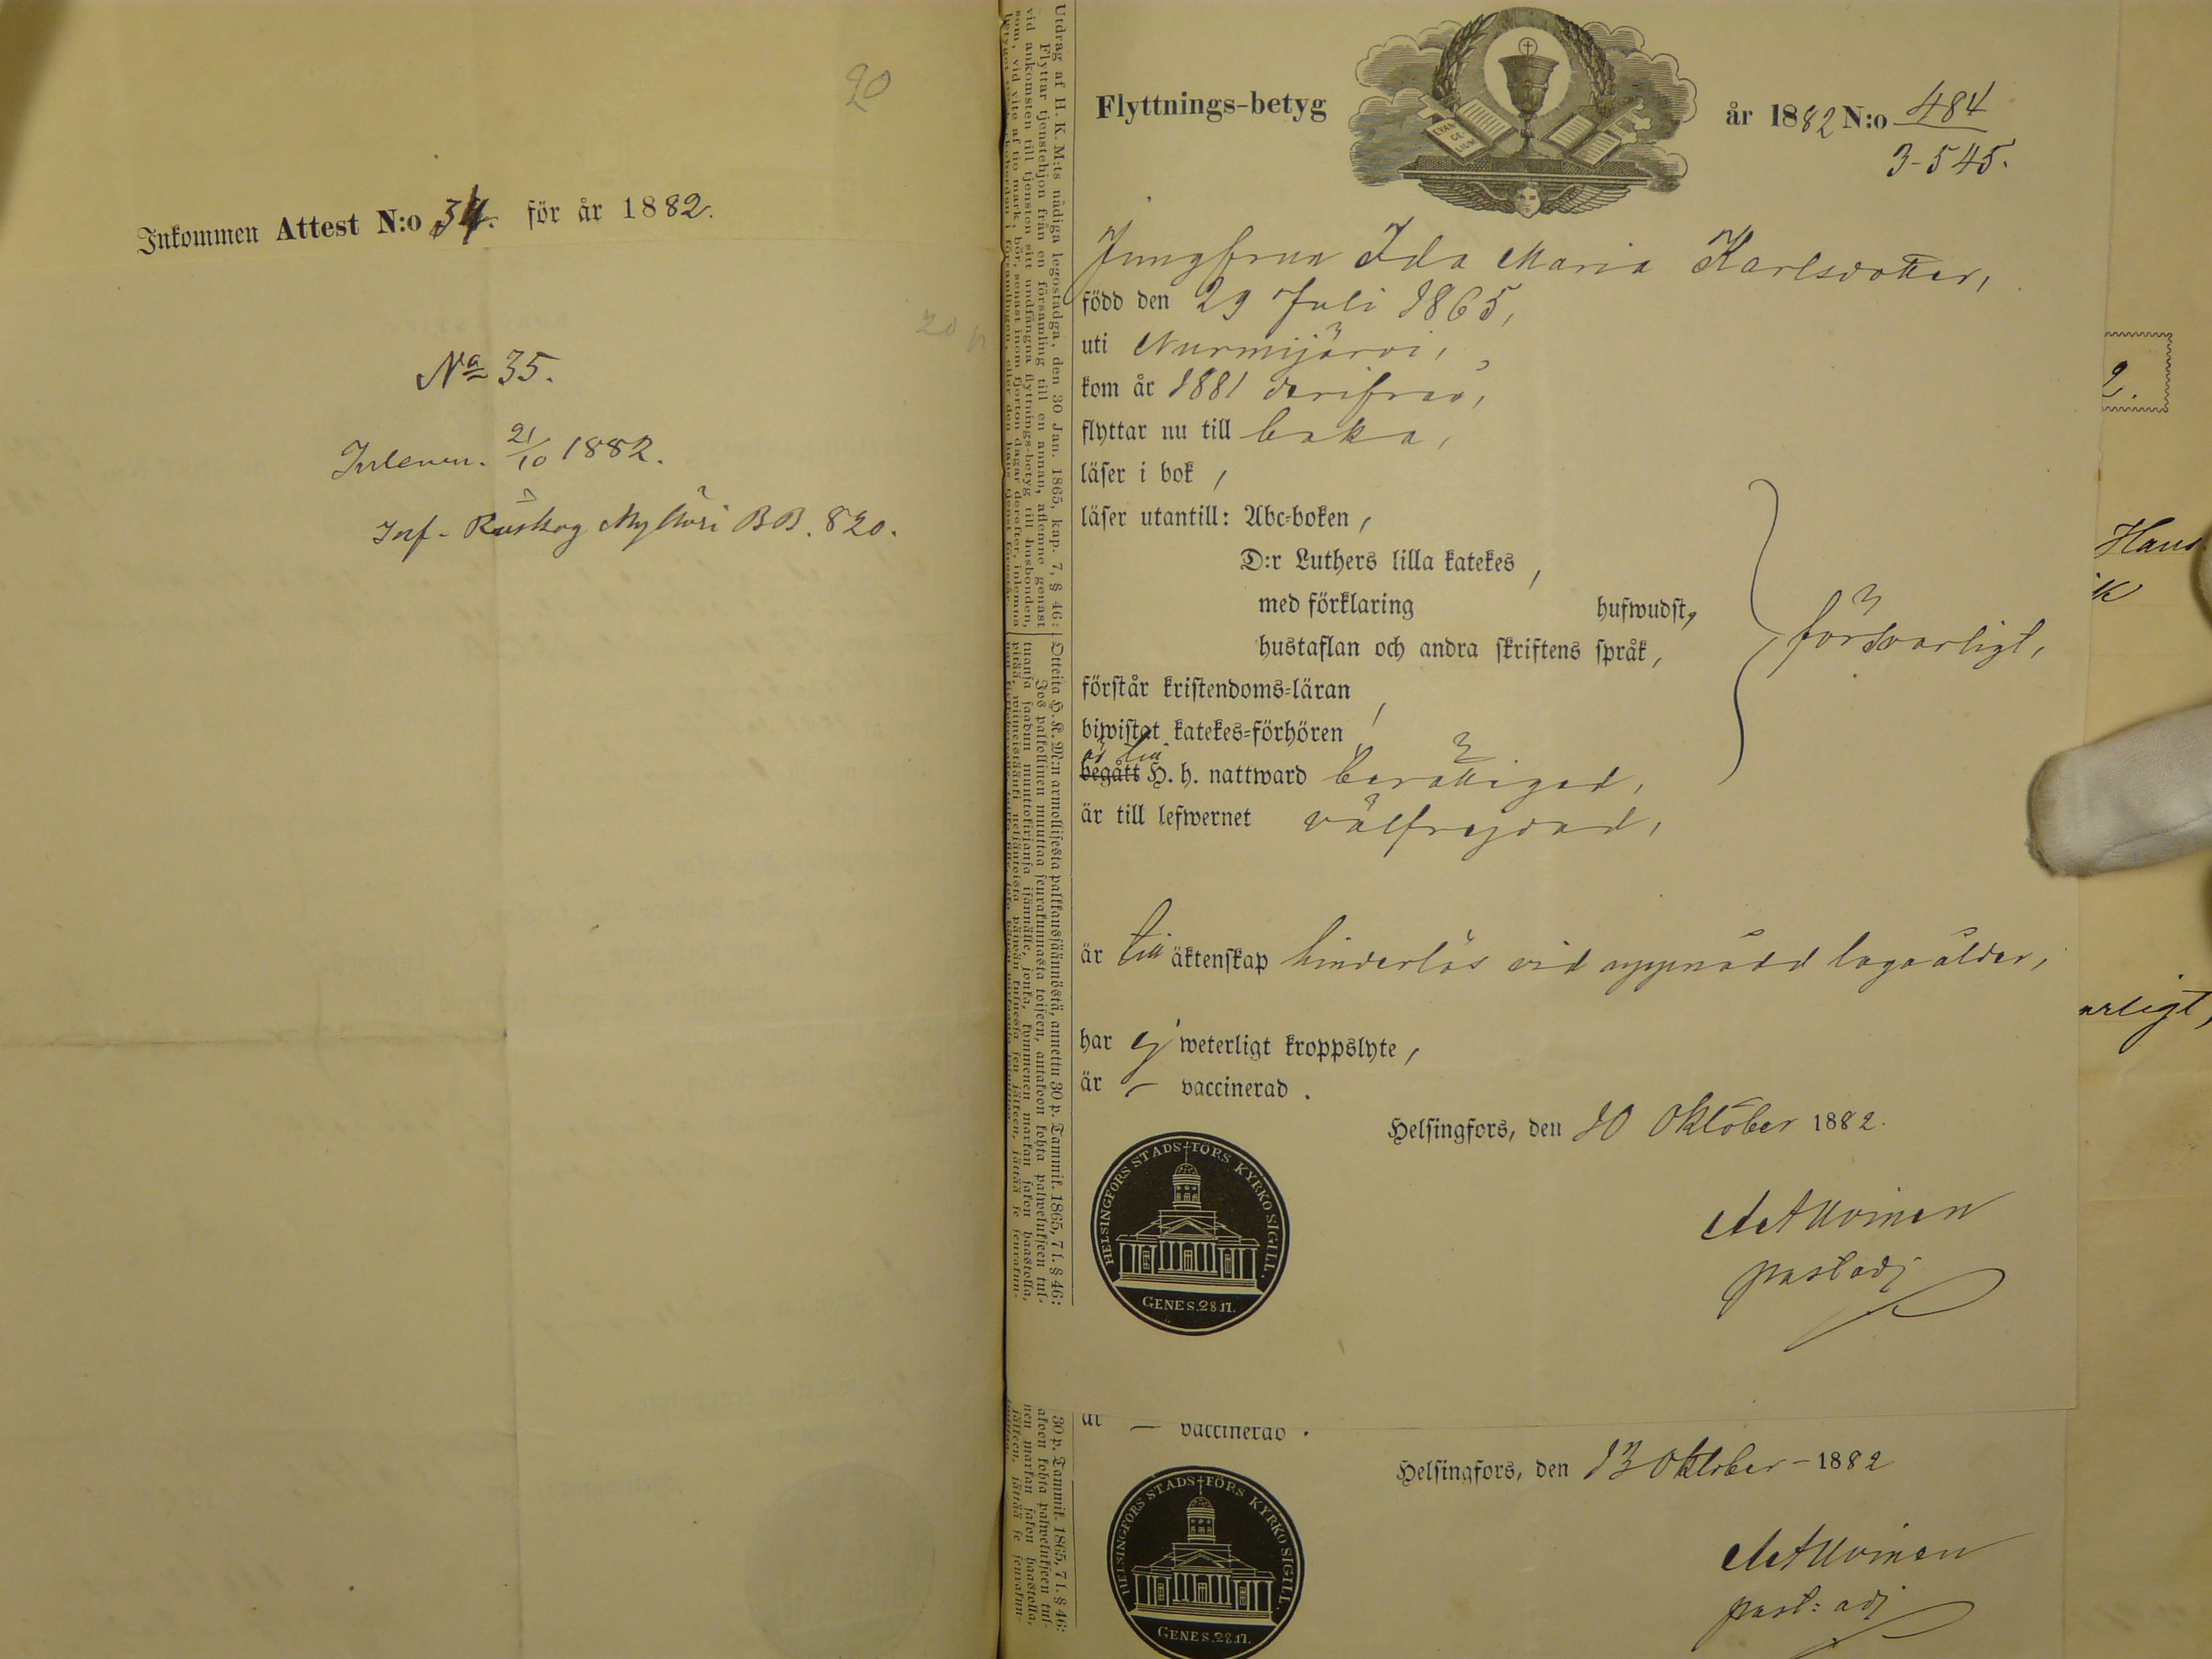 20
Inkommen Attest N:o 34. för år 1882.
No 35.
21/10 1882.
BB. 820.
Utdrag af H. K. M:ts nådiga legostadga, den 30 Jan. 1865, kap. 7, § 46:
Flyttar tjenstehjon från en församling till en annan, aflemne genast
vid ankomsten till tjensten sitt undfångna flyttnings-betyg till husbonden,
som, vid vite af tio mark, bör, senast inom fjorton dagar derefter, inlemna
Otteita H. K. M:n armollisesta palkkaussäännöstä, annettu 30 p. Tammik. 1865, 7 l. § 46:
Jos palkollinen muuttaa seurakunnasta toiseen, antakoon kohta palwelukseen tul-
tuansa saadun muuttokirjansa isännälle, jonka, kymmenen markan sakon haastolla,
Flyttnings-betyg
EVAN
GE
LIUM
år 1882 N:o 484
3-545.
Jungfrun Ida Maria Karlsdotter,
född den 29 Juli 1865,
uti Nurmijärvi,
kom år 1881 derifrån,
flyttar nu till baka,
läser i bok,
läser utantill: Abc-boken,
D:r Luthers lilla katekes,
med förklaring hufwudst,
hustaflan och andra skriftens språk,
försvarligt,
förstår kristendoms-läran,
biwistat katekes-förhören,
är till
begått H. h. nattward berättigad,
är till lefwernet välfrejdad,
är till äktenskap hinderlös vid uppnådd lagaålder,
har ej weterligt kroppslyte,
är — vaccinerad.
Helsingfors, den 10 Oktober 1882.
HELSINGFORS STADS FÖRS KYRKO SIGILL.
GENES. 28.17.
past adj
är — vaccinerad.
Helsingfors, den 13 Oktober - 1882
HELSINGFORS STADS FÖRS KYRKO SIGILL.
GENES. 28.17.
past: adj
2.
arligt,